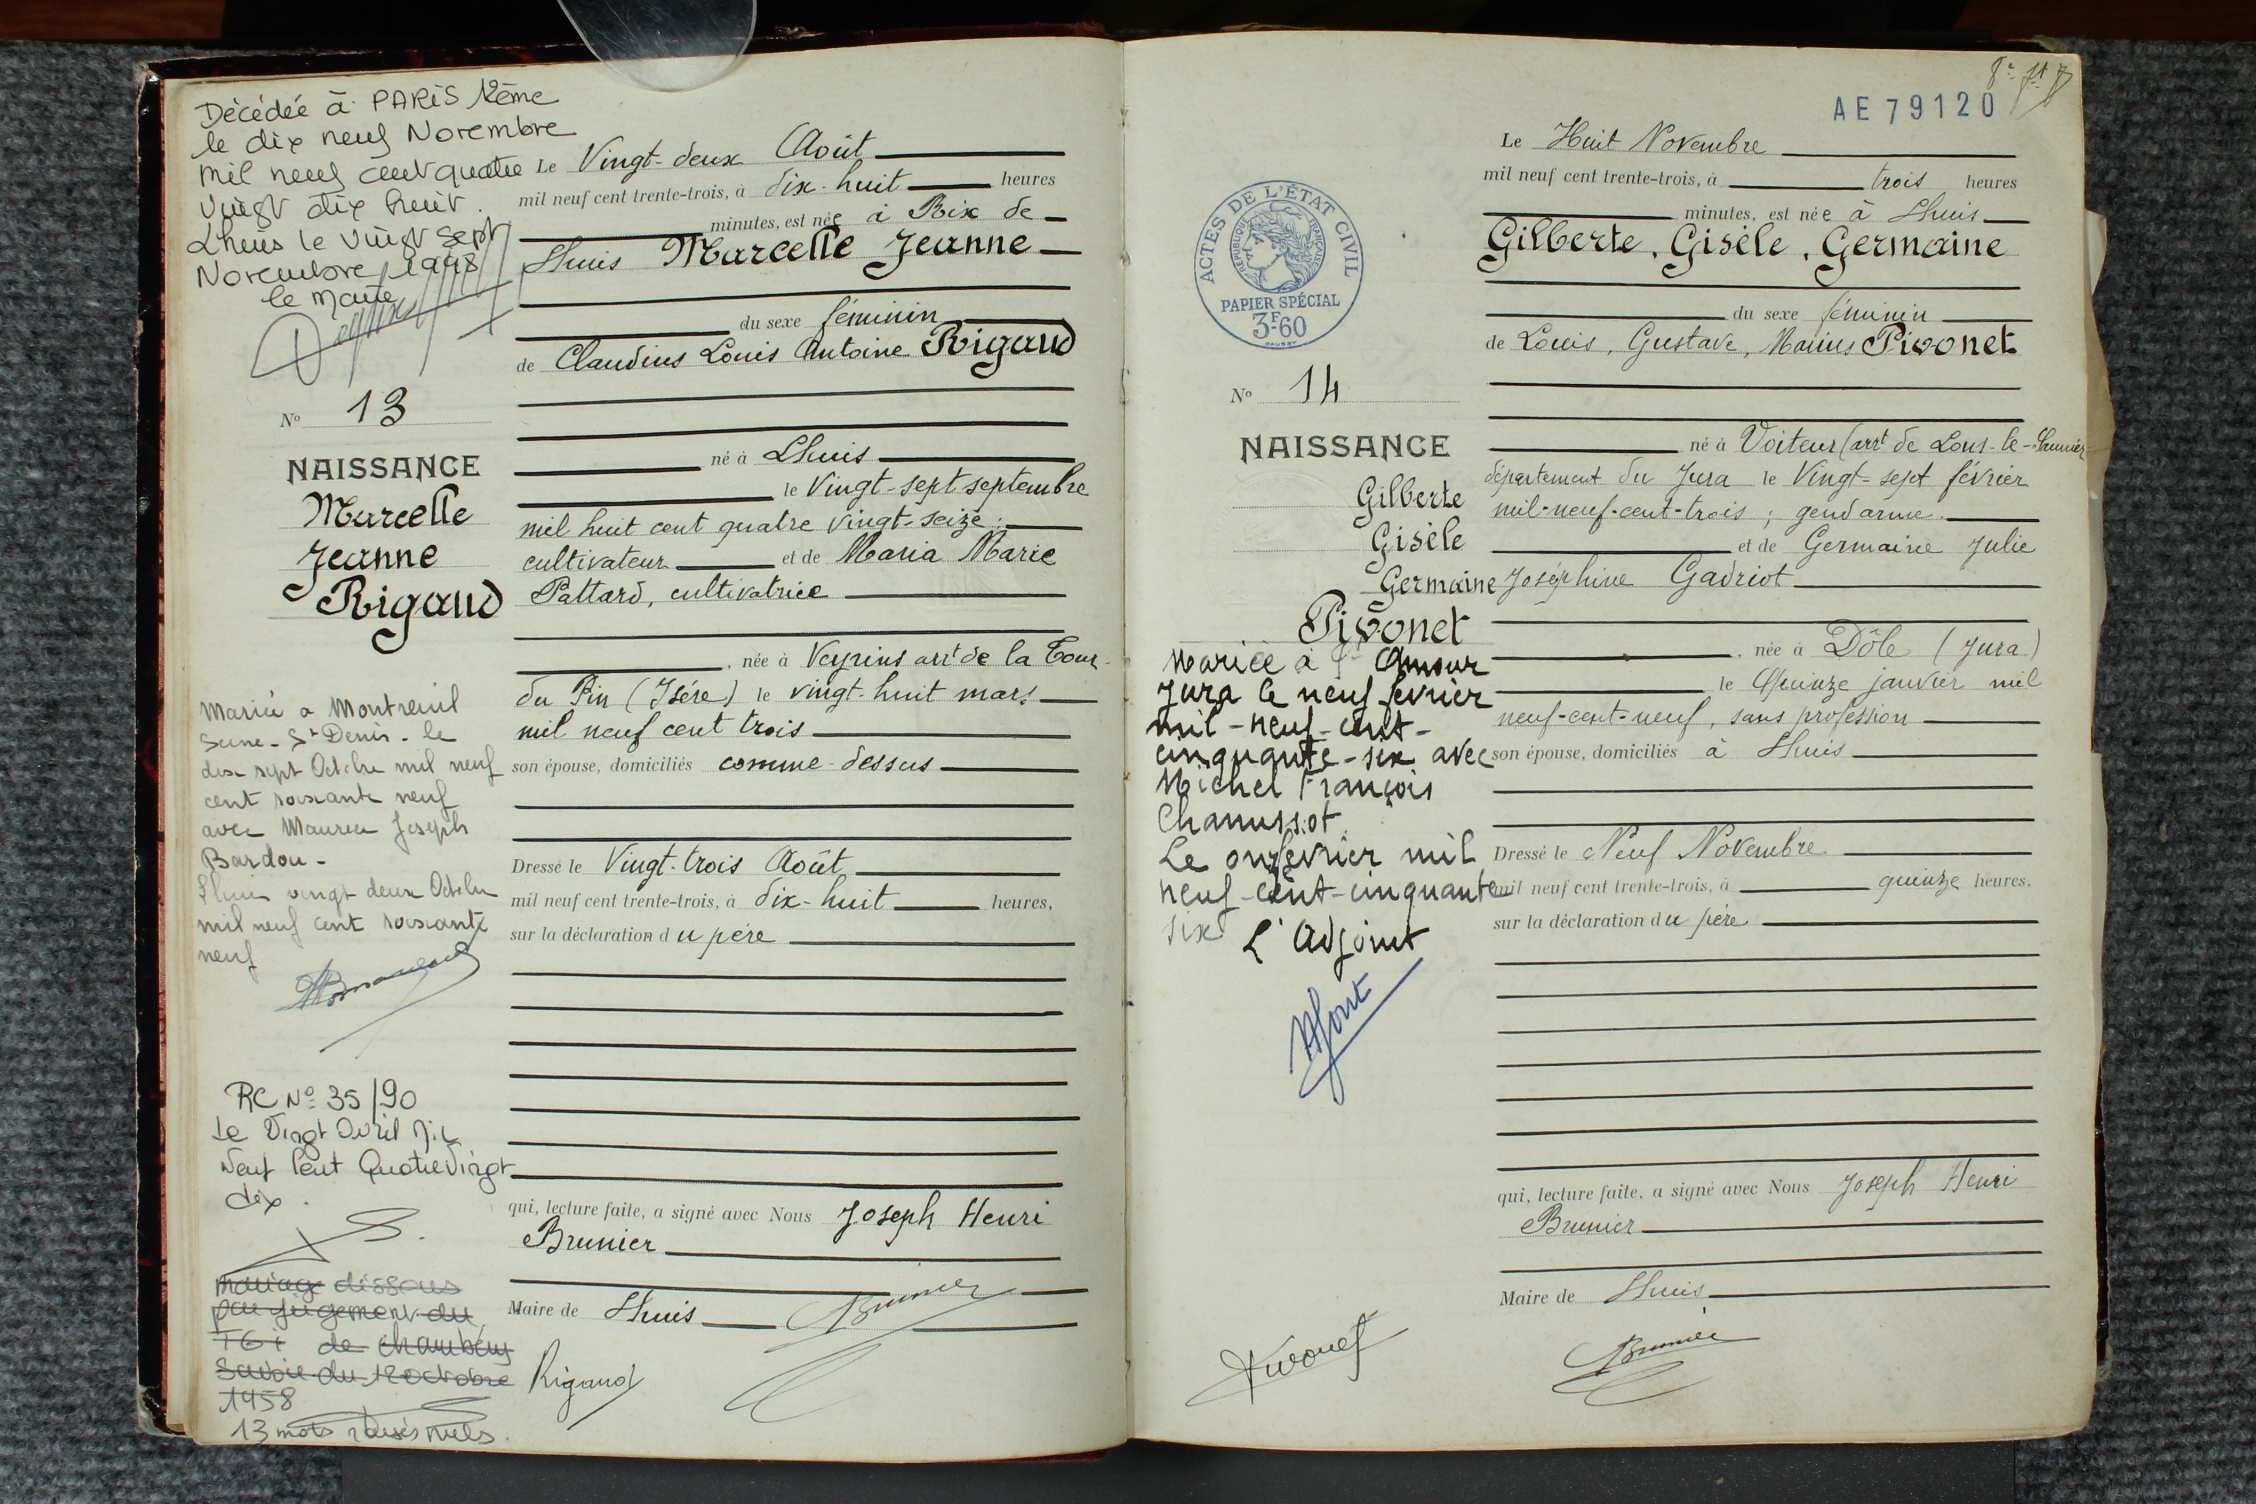 Décédée à PARIS 12ème
le dix neuf Novembre
mil neuf cent quatre
vingt dix huit.
Lhuis le vingt sept
Novembre 1998
le Maire
N° 13
NAISSANCE
Marcelle
Jeanne
Rigaud
Mariée à Montreuil
Seine-St Denis - le
dix sept Octobre mil neuf
cent soixante neuf
avec Maurice Joseph
Bardou -
Lhuis vingt deux Octobre
mil neuf cent soixante
neuf
RC N° 35/90
Le Vingt Avril Mil
Neuf Cent Quatre Vingt
dix.
mariage dissous
par jugement du
TGI de Chambéry
Savoie du 12 octobre
1958
13 mots rayés nuls.
Le Vingt-deux Août
mil neuf cent trente-trois, à dix-huit heures
minutes, est née à Rix de
Lhuis Marcelle Jeanne
du sexe féminin
de Claudius Louis Antoine Rigaud
né à Lhuis
le vingt-sept septembre
mil huit cent quatre vingt-seize;
cultivateur et de Maria Marie
Pattard, cultivatrice
, née à Veyrins arrt de la Tour-
du Pin (Isère) le vingt-huit mars
mil neuf cent trois
son épouse, domiciliés comme-dessus
Dressé le Vingt-trois Août
mil neuf cent trente-trois, à dix-huit heures,
sur la déclaration du père
qui, lecture faite, a signé avec Nous Joseph Henri
Brunier
Maire de Lhuis Brunier
Rigaud
AE79120
ACTES DE L'ÉTAT CIVIL
RÉPUBLIQUE FRANÇAISE
PAPIER SPÉCIAL
3F60
N° 14
NAISSANCE
Gilberte
Gisèle
Germaine
Pivonet
Mariée à St Amour
Jura le neuf février
mil-neuf-cent-
cinquante-six avec
Michel François
Chanussot.
Le onze février mil
neuf-cent-cinquante
six
L'Adjoint
Le Huit Novembre
mil neuf cent trente-trois, à trois heures
minutes, est née à Lhuis
Gilberte, Gisèle, Germaine
du sexe féminin
de Louis, Gustave, Marius Pivonet
né à Voiteur (arrt de Lons-le-Saunier-
département du Jura le Vingt-sept février
mil-neuf-cent-trois; gendarme.
et de Germaine Julie
Joséphine Gadriot
, née à Dôle (Jura)
le Quinze janvier mil
neuf-cent-neuf, sans profession
son épouse, domiciliés à Lhuis
Dressé le Neuf Novembre
mil neuf cent trente-trois, à quinze heures,
sur la déclaration du père
qui, lecture faite, a signé avec Nous Joseph Henri
Brunier
Maire de Lhuis
Pivonet
Brunier